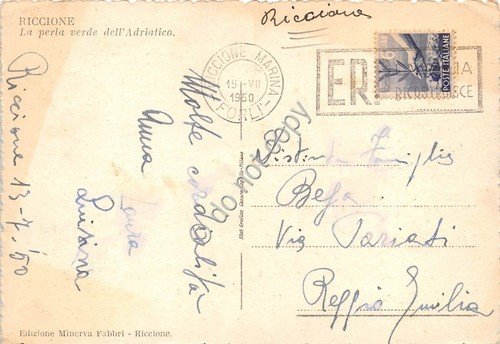 RICCIONE
La perla verde dell'Adriatico.
Riccione
RICCIONE MARINA
15-VII
1950
FORLI
ER
RICOSTRUISCE
POSTE ITALIANE
Riccione 13-7-'50
Molte cordialità
Anna
Luisina
do not copy
Distinta Famiglia
Bega
Via Pariati
Reggio Emilia
Edizione Minerva Fabbri - Riccione.